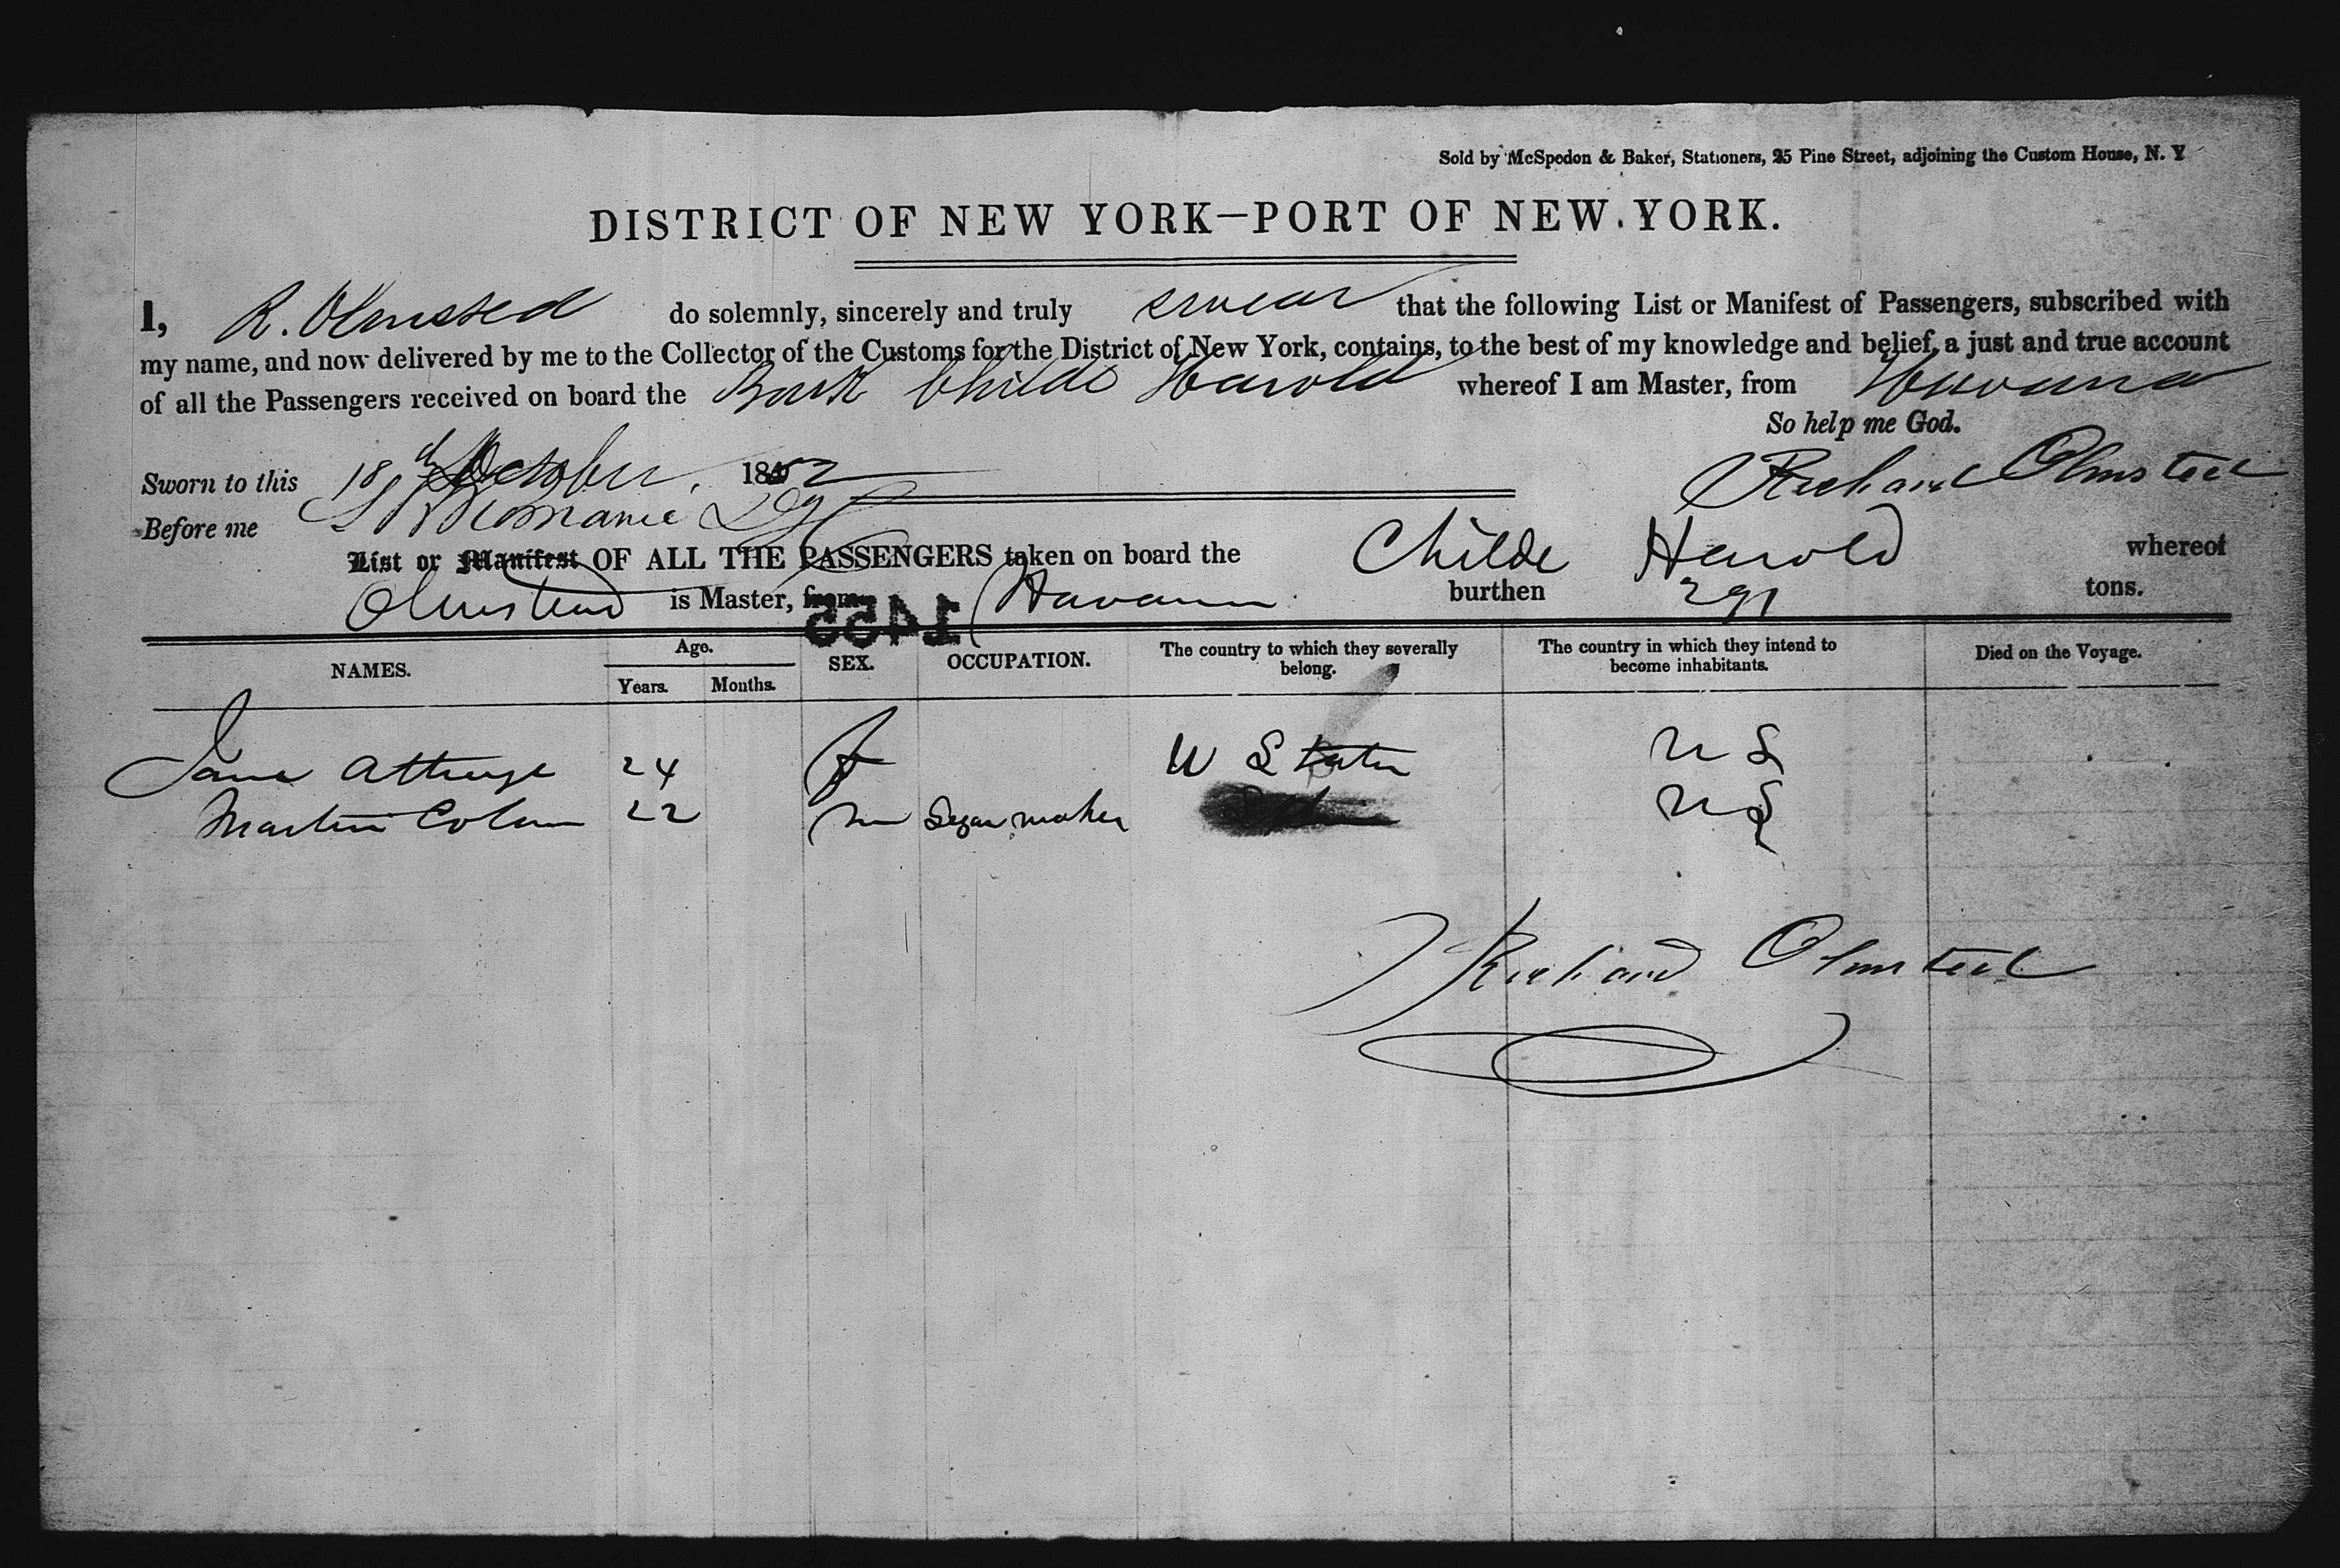 Sold by McSpedon & Baker, Stationers, 25 Pine Street, adjoining the Custom House, N. Y
DISTRICT OF NEW YORK—PORT OF NEW YORK.
I, R. Olmsted do solemnly, sincerely and truly swear that the following List or Manifest of Passengers, subscribed with
my name, and now delivered by me to the Collector of the Customs for the District of New York, contains, to the best of my knowledge and belief, a just and true account
of all the Passengers received on board the Bark Childe Harold whereof I am Master, from Havana
So help me God.
Sworn to this 18th October, 1852
Richard Olmsted
Before me
List or Manifest OF ALL THE PASSENGERS taken on board the Childe Harold whereof
Olmstead is Master, from Havana burthen 291 tons.
1455
NAMES. Age. Years. Months. SEX. OCCUPATION. The country to which they severally belong. The country in which they intend to become inhabitants. Died on the Voyage.
Jane 24 f U States U S
Martin 22 m Segar maker U S
Richard Olmsted